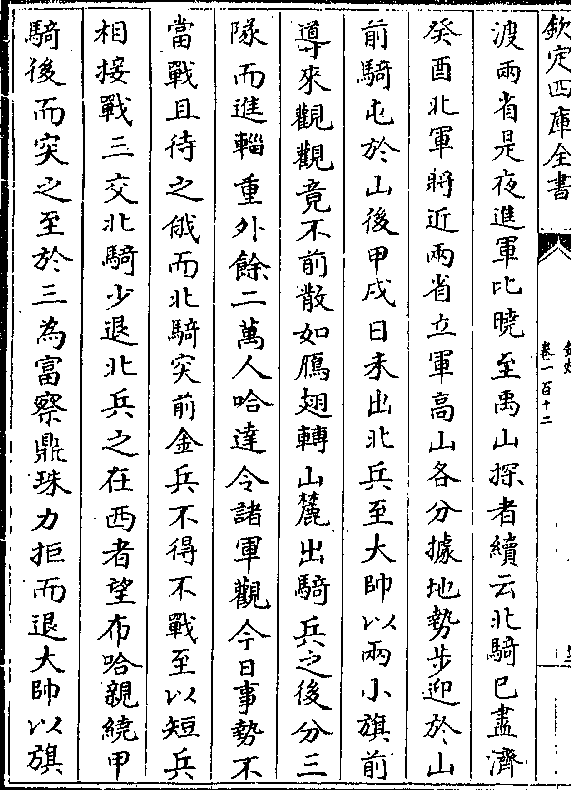 欽定四庫全書
卷一百十二
渡兩省是夜進軍比曉至禹山探者續云北騎已盡濟
癸酉北軍將近兩省立軍高山各分據地勢步迎於山
前騎屯於山後甲戌日未出北兵至大帥以兩小旗前
導來觀觀竟不前散如鴈翅轉山麓出騎兵之後分三
隊而進輜重外餘二萬人哈達令諸軍觀今日事勢不
當戰且待之俄而北騎突前金兵不得不戰至以短兵
相接戰三交北騎少退北兵之在西者望布哈親繞甲
騎後而突之至於三為富察鼎珠力拒而退大帥以旗